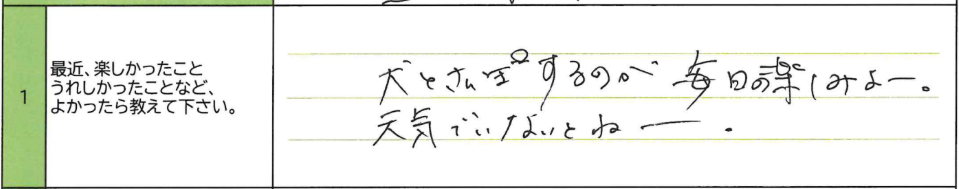 1
最近、楽しかったこと
うれしかったことなど、
よかったら教えて下さい。
犬とさんぽするのが 毎日の楽しみよー。
天気でいないとねー.